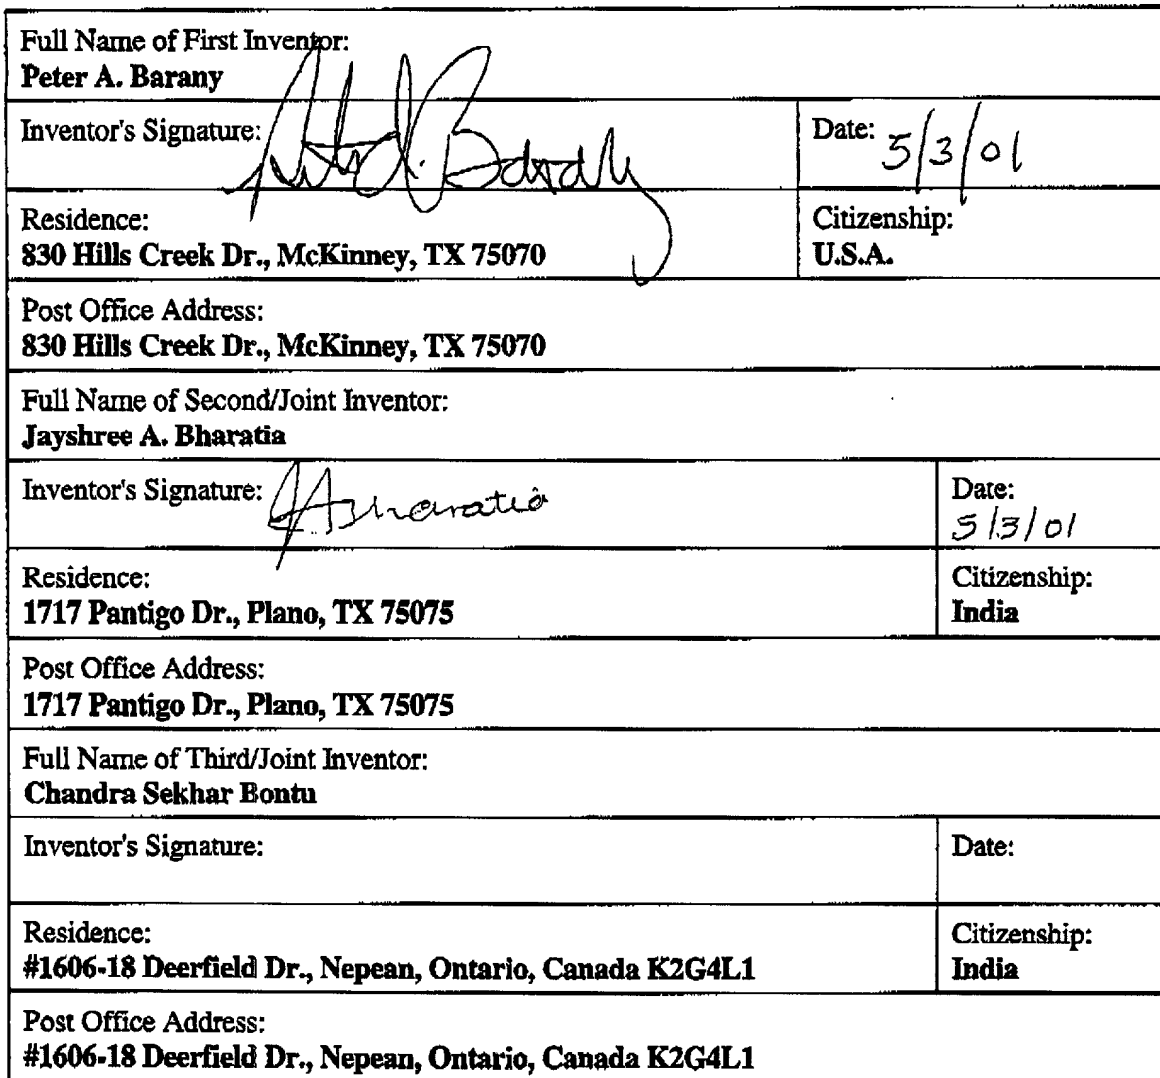 Full Name of First Inventor:
Peter A. Barany
Inventor's Signature: Peter A. Barany Date: 5/3/01
Residence: Citizenship:
830 Hills Creek Dr., McKinney, TX 75070 U.S.A.
Post Office Address:
830 Hills Creek Dr., McKinney, TX 75070
Full Name of Second/Joint Inventor:
Jayshree A. Bharatia
Inventor's Signature: JABharatia Date:
5/3/01
Residence: Citizenship:
1717 Pantigo Dr., Plano, TX 75075 India
Post Office Address:
1717 Pantigo Dr., Plano, TX 75075
Full Name of Third/Joint Inventor:
Chandra Sekhar Bontu
Inventor's Signature: Date:
Residence: Citizenship:
#1606-18 Deerfield Dr., Nepean, Ontario, Canada K2G4L1 India
Post Office Address:
#1606-18 Deerfield Dr., Nepean, Ontario, Canada K2G4L1